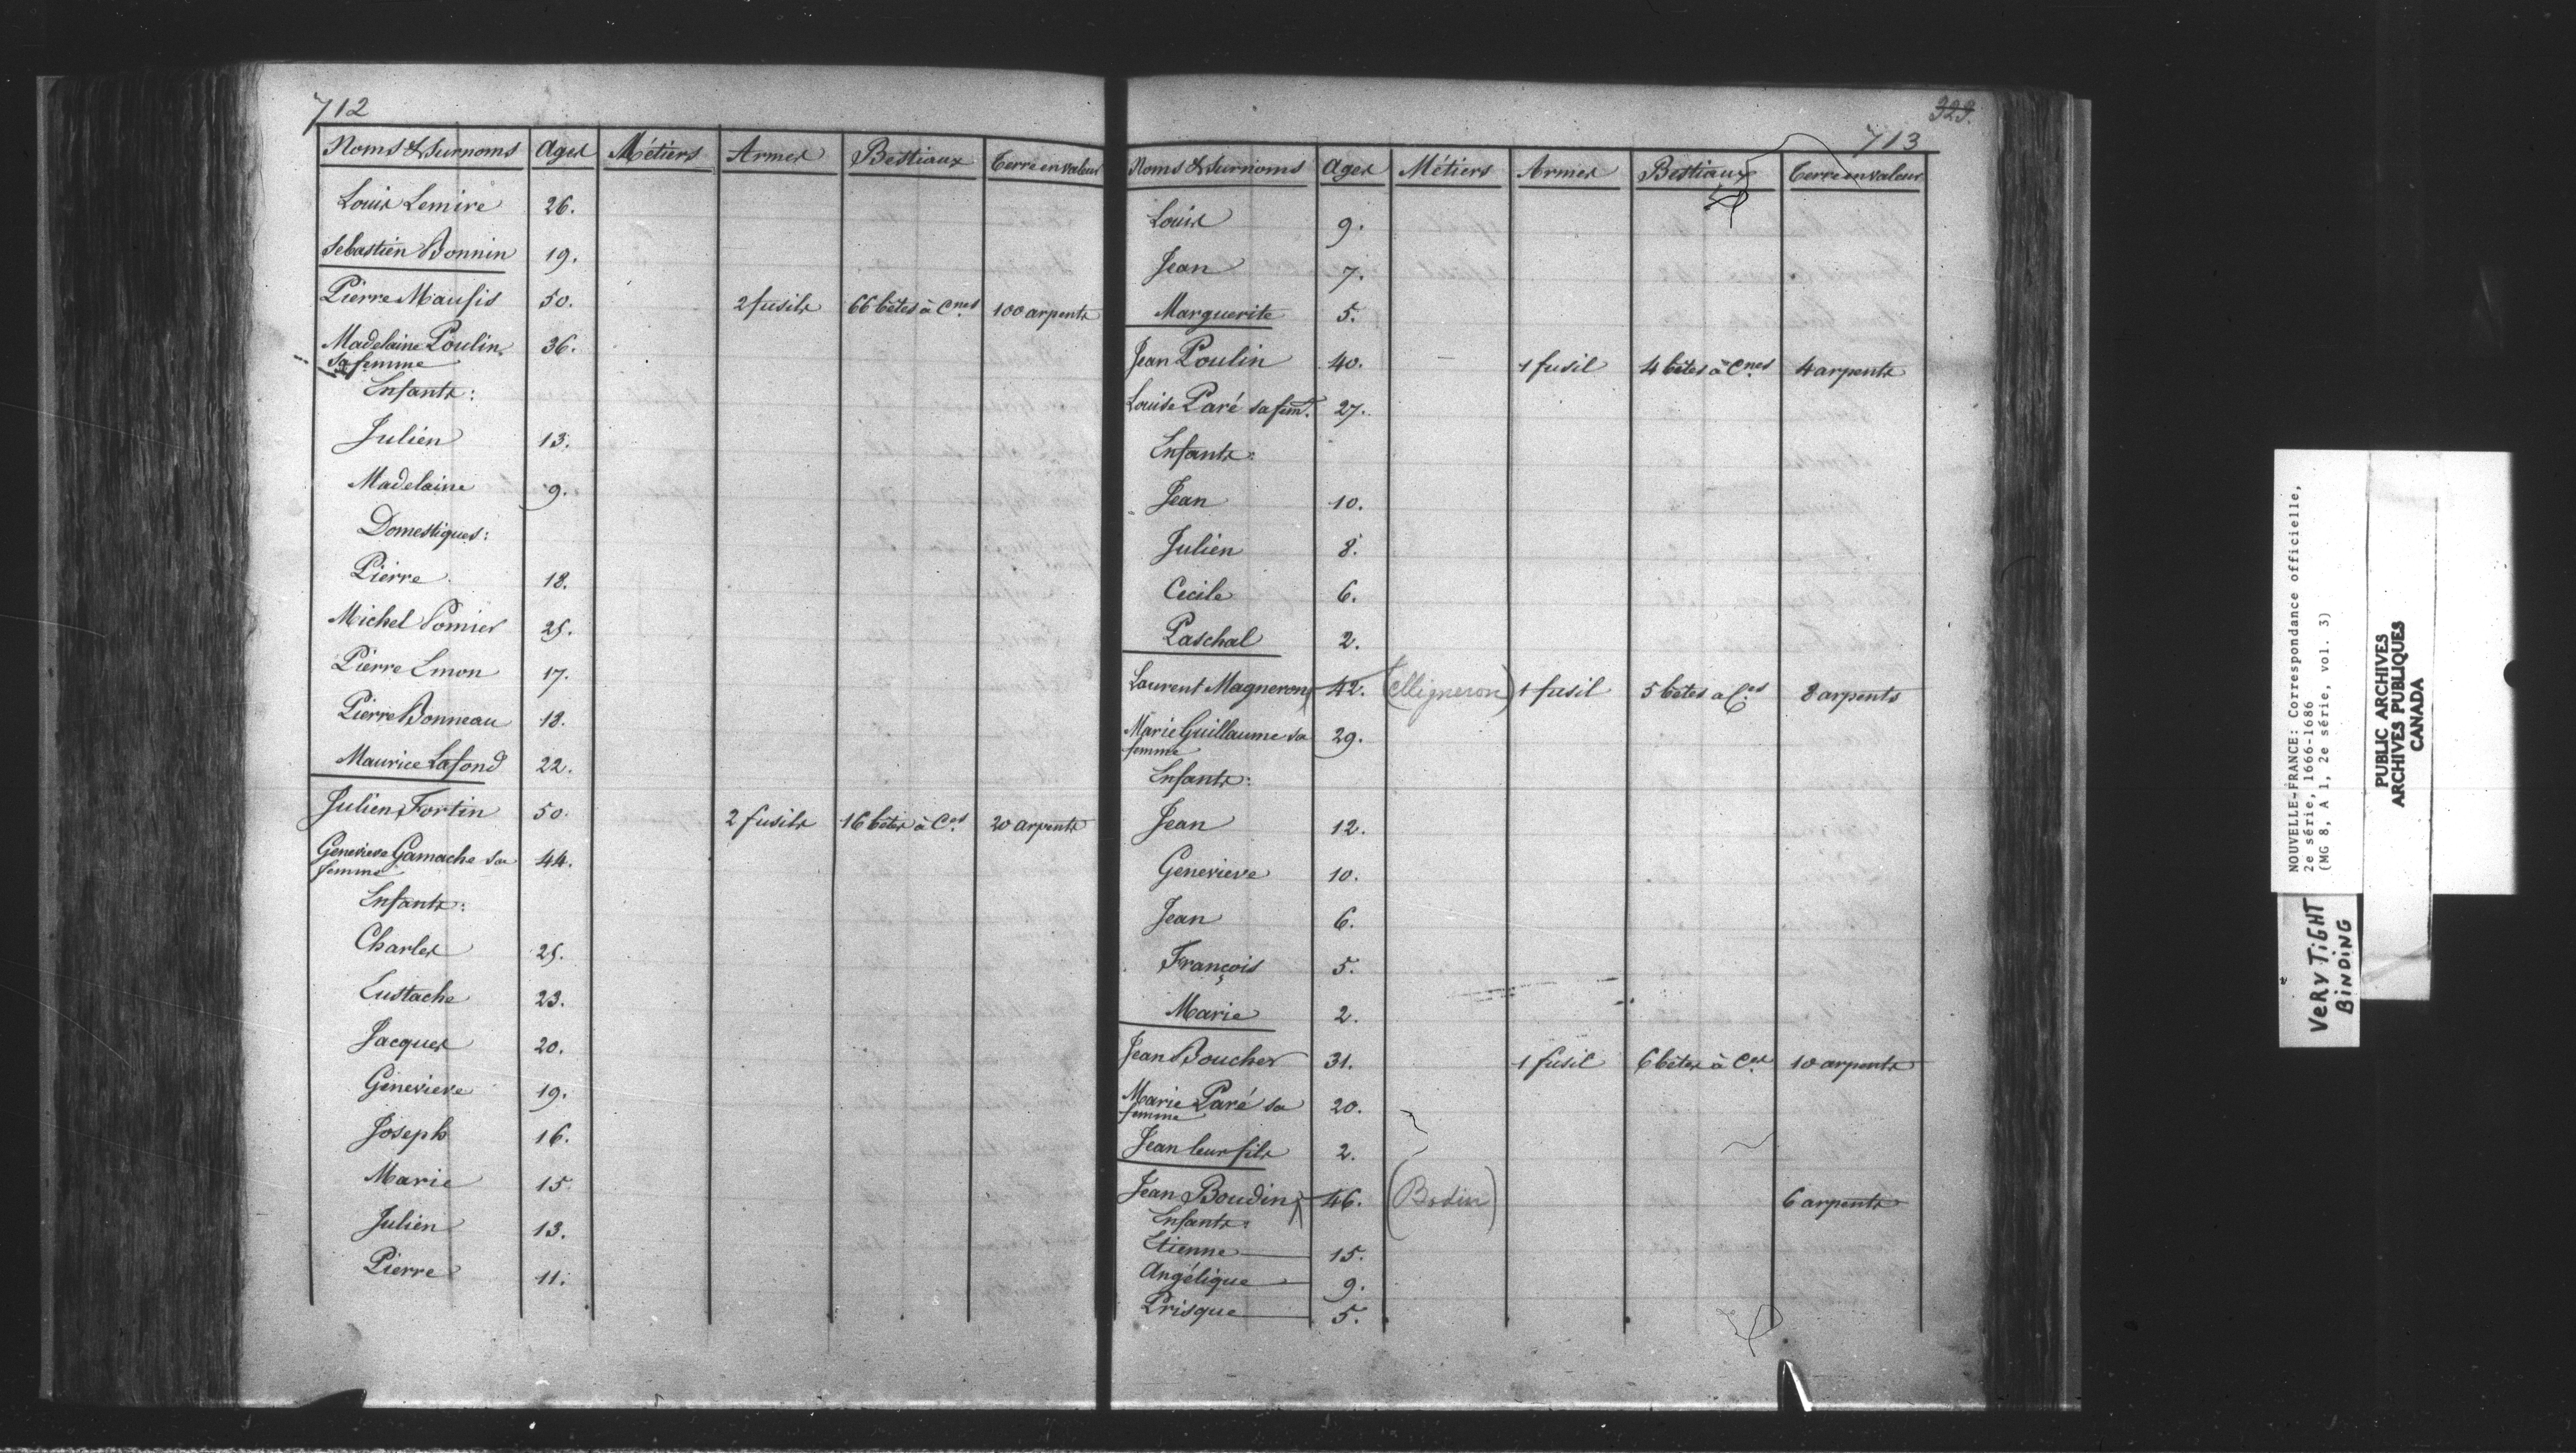 712
Noms & Surnoms Ages Métiers Armes Bestiaux Terre en valeur
Louis Lemire 26.
Sebastien Bonnin 19.
Pierre Maufis 50. 2 fusils 66 bêtes à Cnes 100 arpents
Madelaine Poulin 36.
sa femme
Enfants:
Julien 13.
Madelaine 9.
Domestiques:
Pierre 18.
Michel Pomier 25.
Pierre Emon 17.
Pierre Bonneau 18.
Maurice Lafond 22.
Julien Fortin 50. 2 fusils 16 bêtes à Ces 20 arpents
Genevieve Gamache sa 44.
femme
Enfants:
Charles 25.
Eustache 23.
Jacques 20.
Genevieve 19.
Joseph 16.
Marie 15
Julien 13.
Pierre 11.
323.
713
Noms & Surnoms Ages Métiers Armes Bestiaux Terre en valeur
Louis 9.
Jean 7.
Marguerite 5.
Jean Poulin 40. 1 fusil 4 bêtes à Cnes 4 arpents
Louise Paré sa fem. 27.
Enfants:
Jean 10.
Julien 8.
Cecile 6.
Paschal 2.
Laurent Magneron 42. (Migneron) 1 fusil 5 bêtes a Ces 8 arpents
Marie Guillaume sa 29.
femme
Enfants:
Jean 12.
Genevieve 10.
Jean 6.
François 5.
Marie 2.
Jean Boucher 31. 1 fusil 6 bêtes à Ces 10 arpents
Marie Paré sa 20.
femme
Jean leur fils 2.
Jean Boudin 46. (Bodin) 6 arpents
Enfants:
Etienne 15.
Angélique 9.
Prisque 5.
NOUVELLE-FRANCE: Correspondance officielle,
2e série, 1666-1686
(MG 8, A 1, 2e série, vol. 3)
PUBLIC ARCHIVES
ARCHIVES PUBLIQUES
CANADA
VERY TiGHT
BiNDiNG